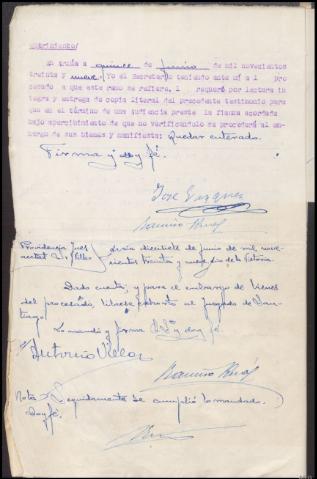 Requerimiento/
En Cruña a quince de junio de mil novecientos
treinta y nueve. Yo el Secretario teniendo ante mí a l pro
cesado a que este ramo se refiere, l requerí por lectura ín
tegra y entrega de copia literal del precedente testimonio para
que en el término de una audiencia preste la fianza acordada
bajo apercibimiento de que no verificándolo se procederá al em
bargo de sus bienes y manifiesta: Quedar enterado.
Firma y doy fé.
José Vázquez
Ramiro
Providencia Juez
dieciseite de junio de mil nove-
cientos treinta y nueve año de la Victoria.
Dada cuenta; y para el embargo de bienes
del procesado, líbrese exhorto al Juzgado de San-
tiago.
Lo mandó y firma S.Sª y doy fé.
Antonio
Ramiro
Nota Seguidamente se cumplió lo mandado.
Doy fé.